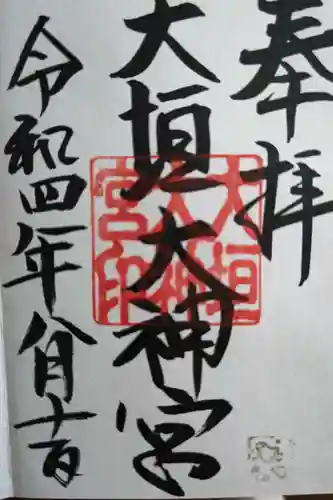 奉拝
大垣大神宮
大垣大神宮印
令和四年八月十一日